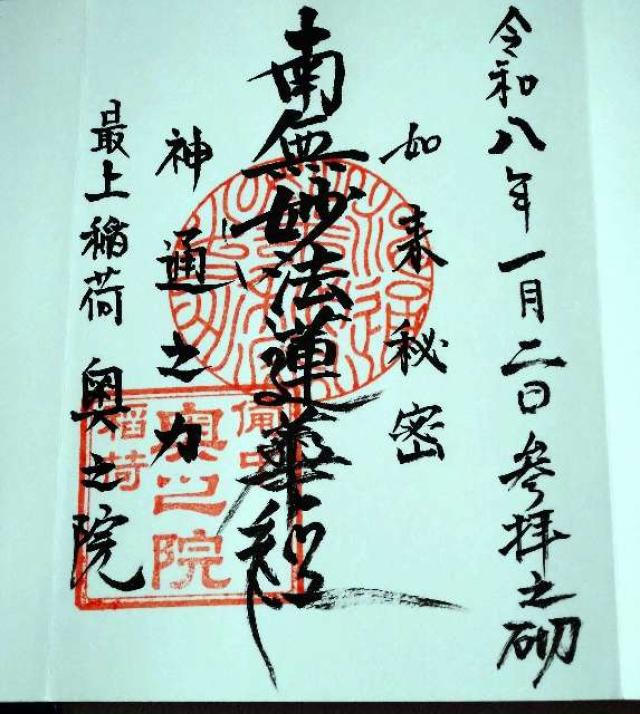 令和八年一月二日 参拝之砌
如来秘密
南無妙法蓮華経
神通之力
最上稲荷 奥之院
備中
奥之院
稲荷